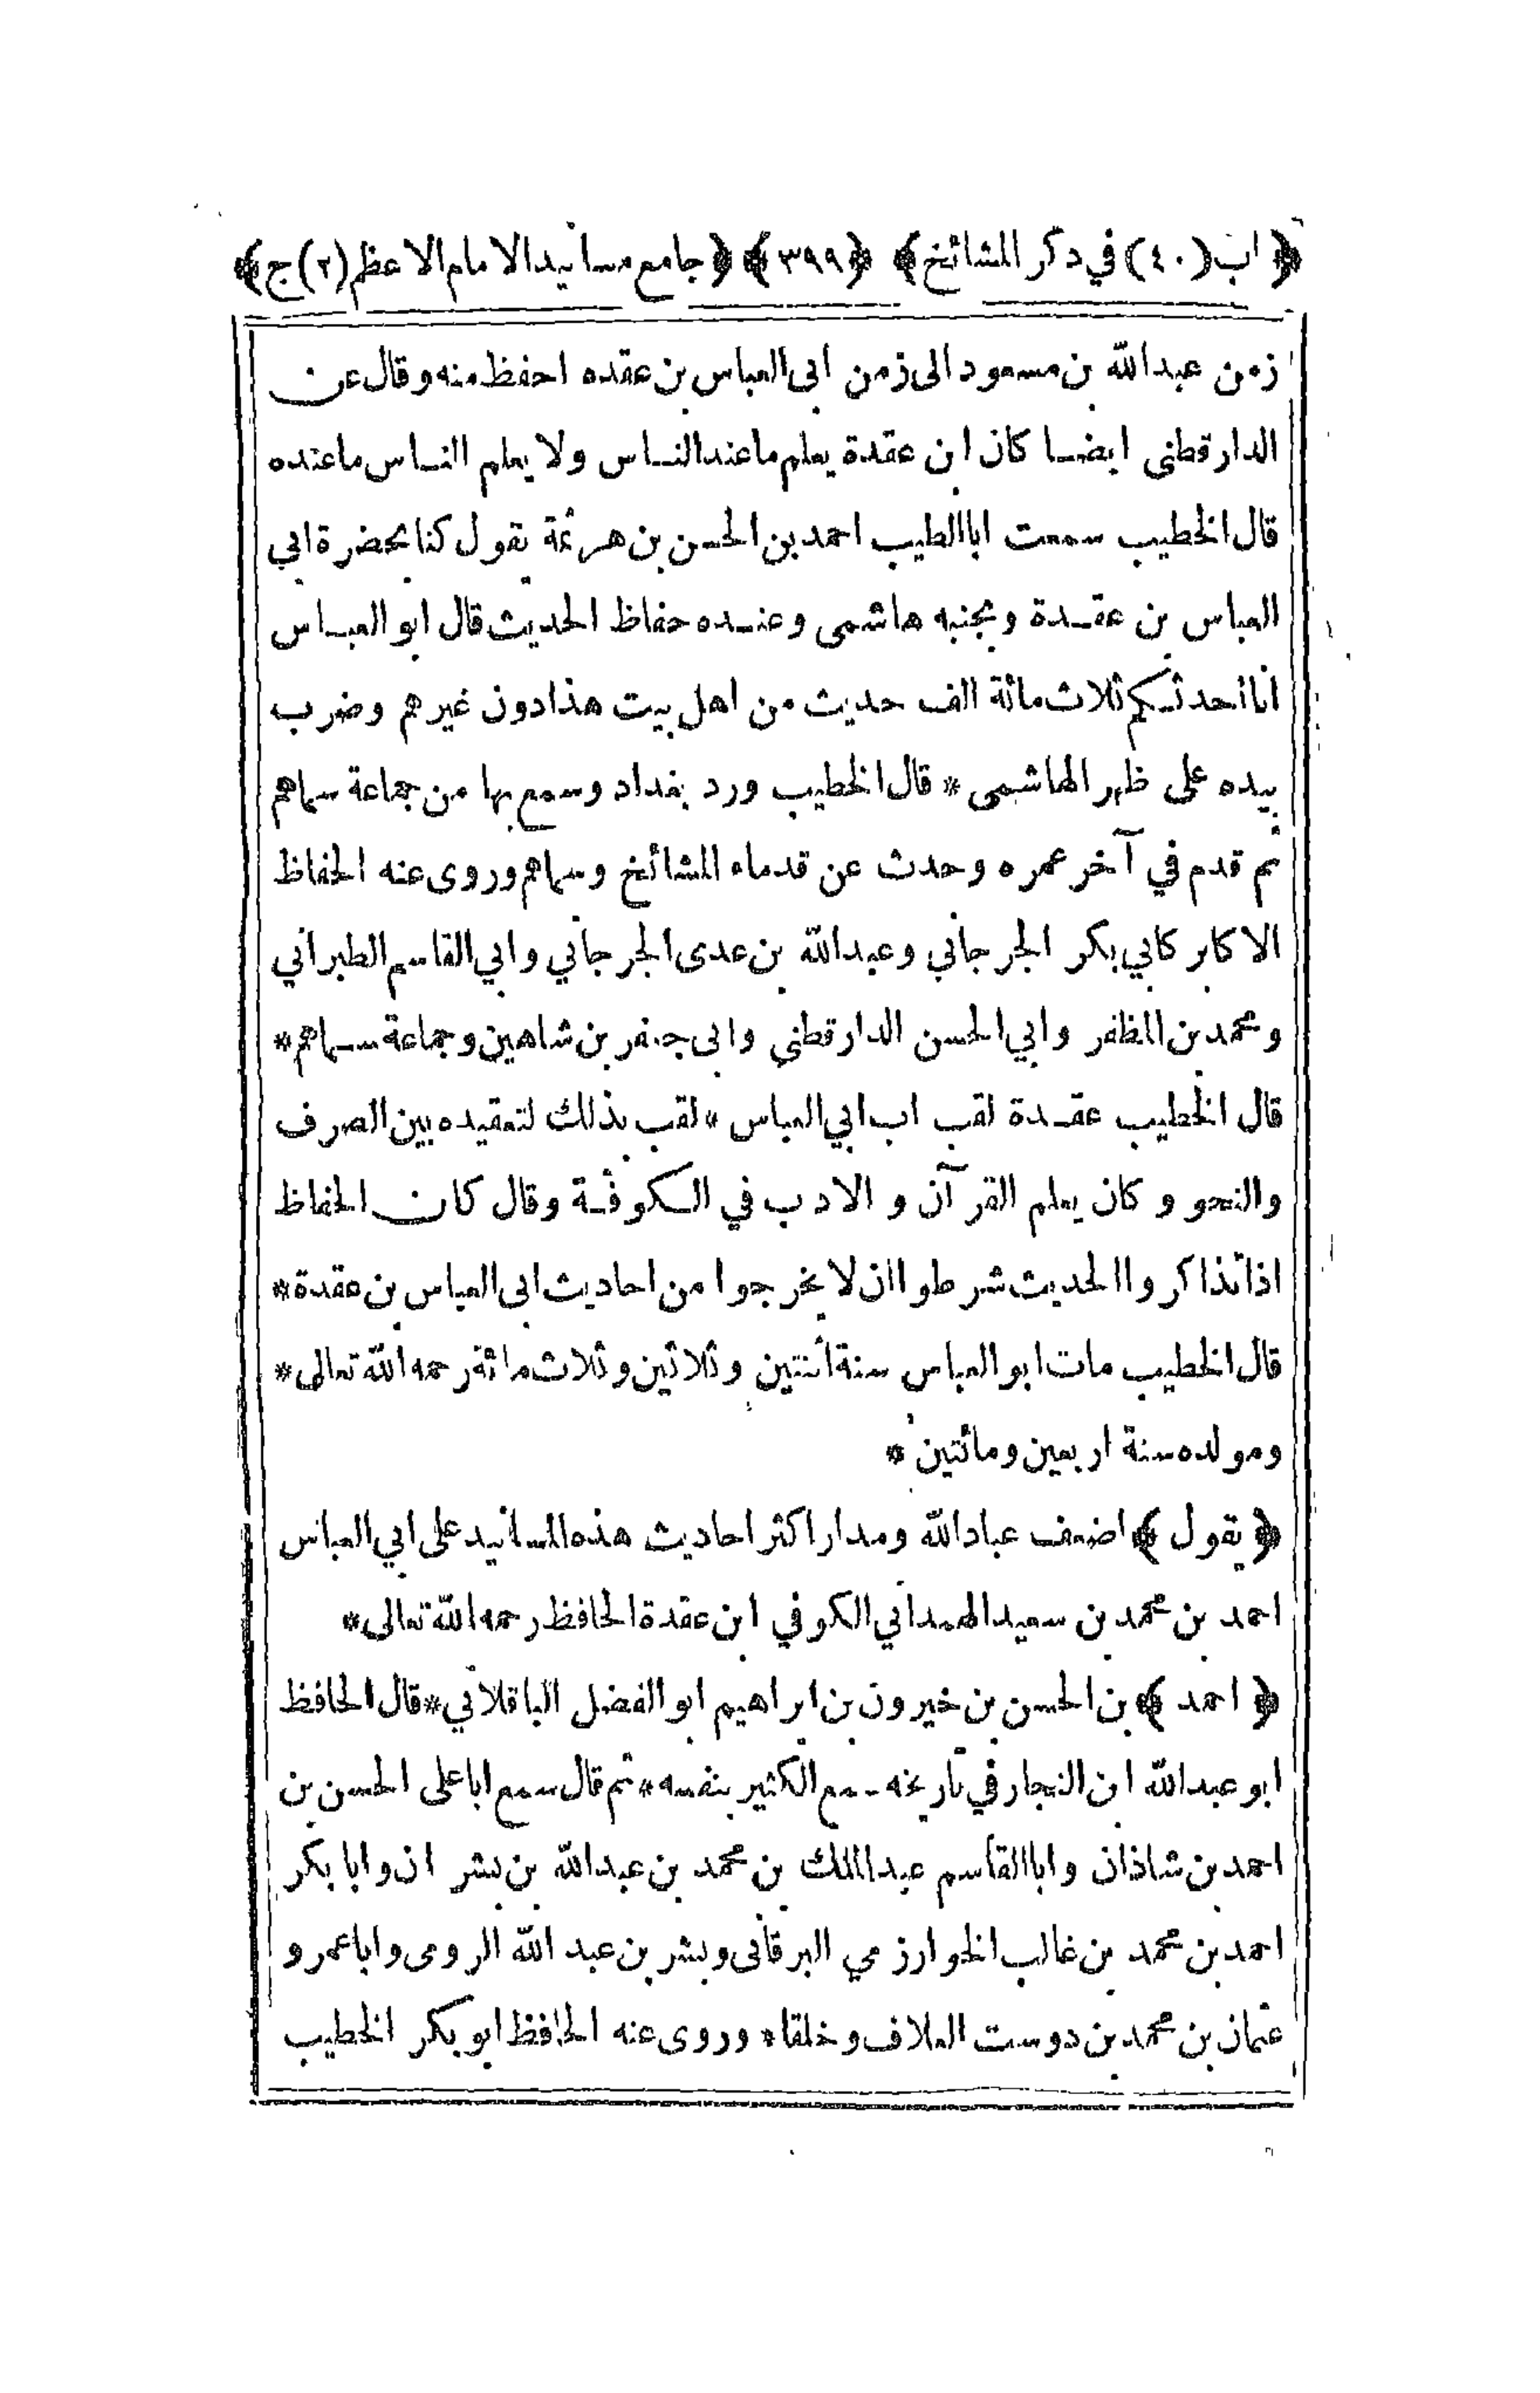 ﴿ اب (٤٠) في ذكر المشائخ ﴾ ﴿ ٣٩٩ ﴾ ﴿ جامع مسانيد الامام الاعظم (٢) ج ﴾
زمن عبد الله بن مسعود الى زمن ابى العباس بن عقده احفظ منه وقال عن
الدار قطنى ايضا كان ابن عقدة يعلم ما عند الناس ولا يعلم الناس ما عنده
قال الخطيب سمعت ابا الطيب احمد بن الحسن بن هرثمة يقول كنا بحضرة ابي
العباس بن عقدة وبجنبه هاشمى وعنده حفاظ الحديث قال ابو العباس
انا احدثكم ثلاث مائة الف حديث من اهل بيت هذا دون غيرهم وضرب
بيده على ظهر الهاشمى * قال الخطيب ورد بغداد وسمع بها من جماعة سماهم
ثم قدم في آخر عمره وحدث عن قدماء المشائخ وسماهم وروى عنه الحفاظ
الاكابر كابي بكر الجرجاني وعبد الله بن عدى الجرجاني وابي القاسم الطبراني
ومحمد بن المظفر وابي الحسن الدار قطني وابى جعفر بن شاهين وجماعة سماهم *
قال الخطيب عقدة لقب اب ابي العباس * لقب بذلك لتعقيده بين الصرف
والنحو وكان يعلم القرآن والادب في الكوفة وقال كان الحفاظ
اذا تذاكروا الحديث شرطوا ان لا يخرجوا من احاديث ابى العباس بن عقدة *
قال الخطيب مات ابو العباس سنة اثنتين وثلاثين وثلاث مائة رحمه الله تعالى *
ومولده سنة اربعين ومائتين *
﴿ يقول ﴾ اضعف عباد الله ومدار اكثر احاديث هذه المسانيد على ابي العباس
احمد بن محمد بن سعيد الهمداني الكوفي ابن عقدة الحافظ رحمه الله تعالى *
﴿ احمد ﴾ بن الحسن بن خيرون بن ابراهيم ابو الفضل الباقلاني * قال الحافظ
ابو عبد الله ابن النجار في تاريخه سمع الكثير بنفسه * ثم قال سمع ابا على الحسن بن
احمد بن شاذان وابا القاسم عبد الملك بن محمد بن عبد الله بن بشر ان وابا بكر
احمد بن محمد بن غالب الخوارزمي البرقانى وبشر بن عبد الله الرومى وابا عمرو
عثمان بن محمد بن دوست العلاف وخلقا * وروى عنه الحافظ ابو بكر الخطيب